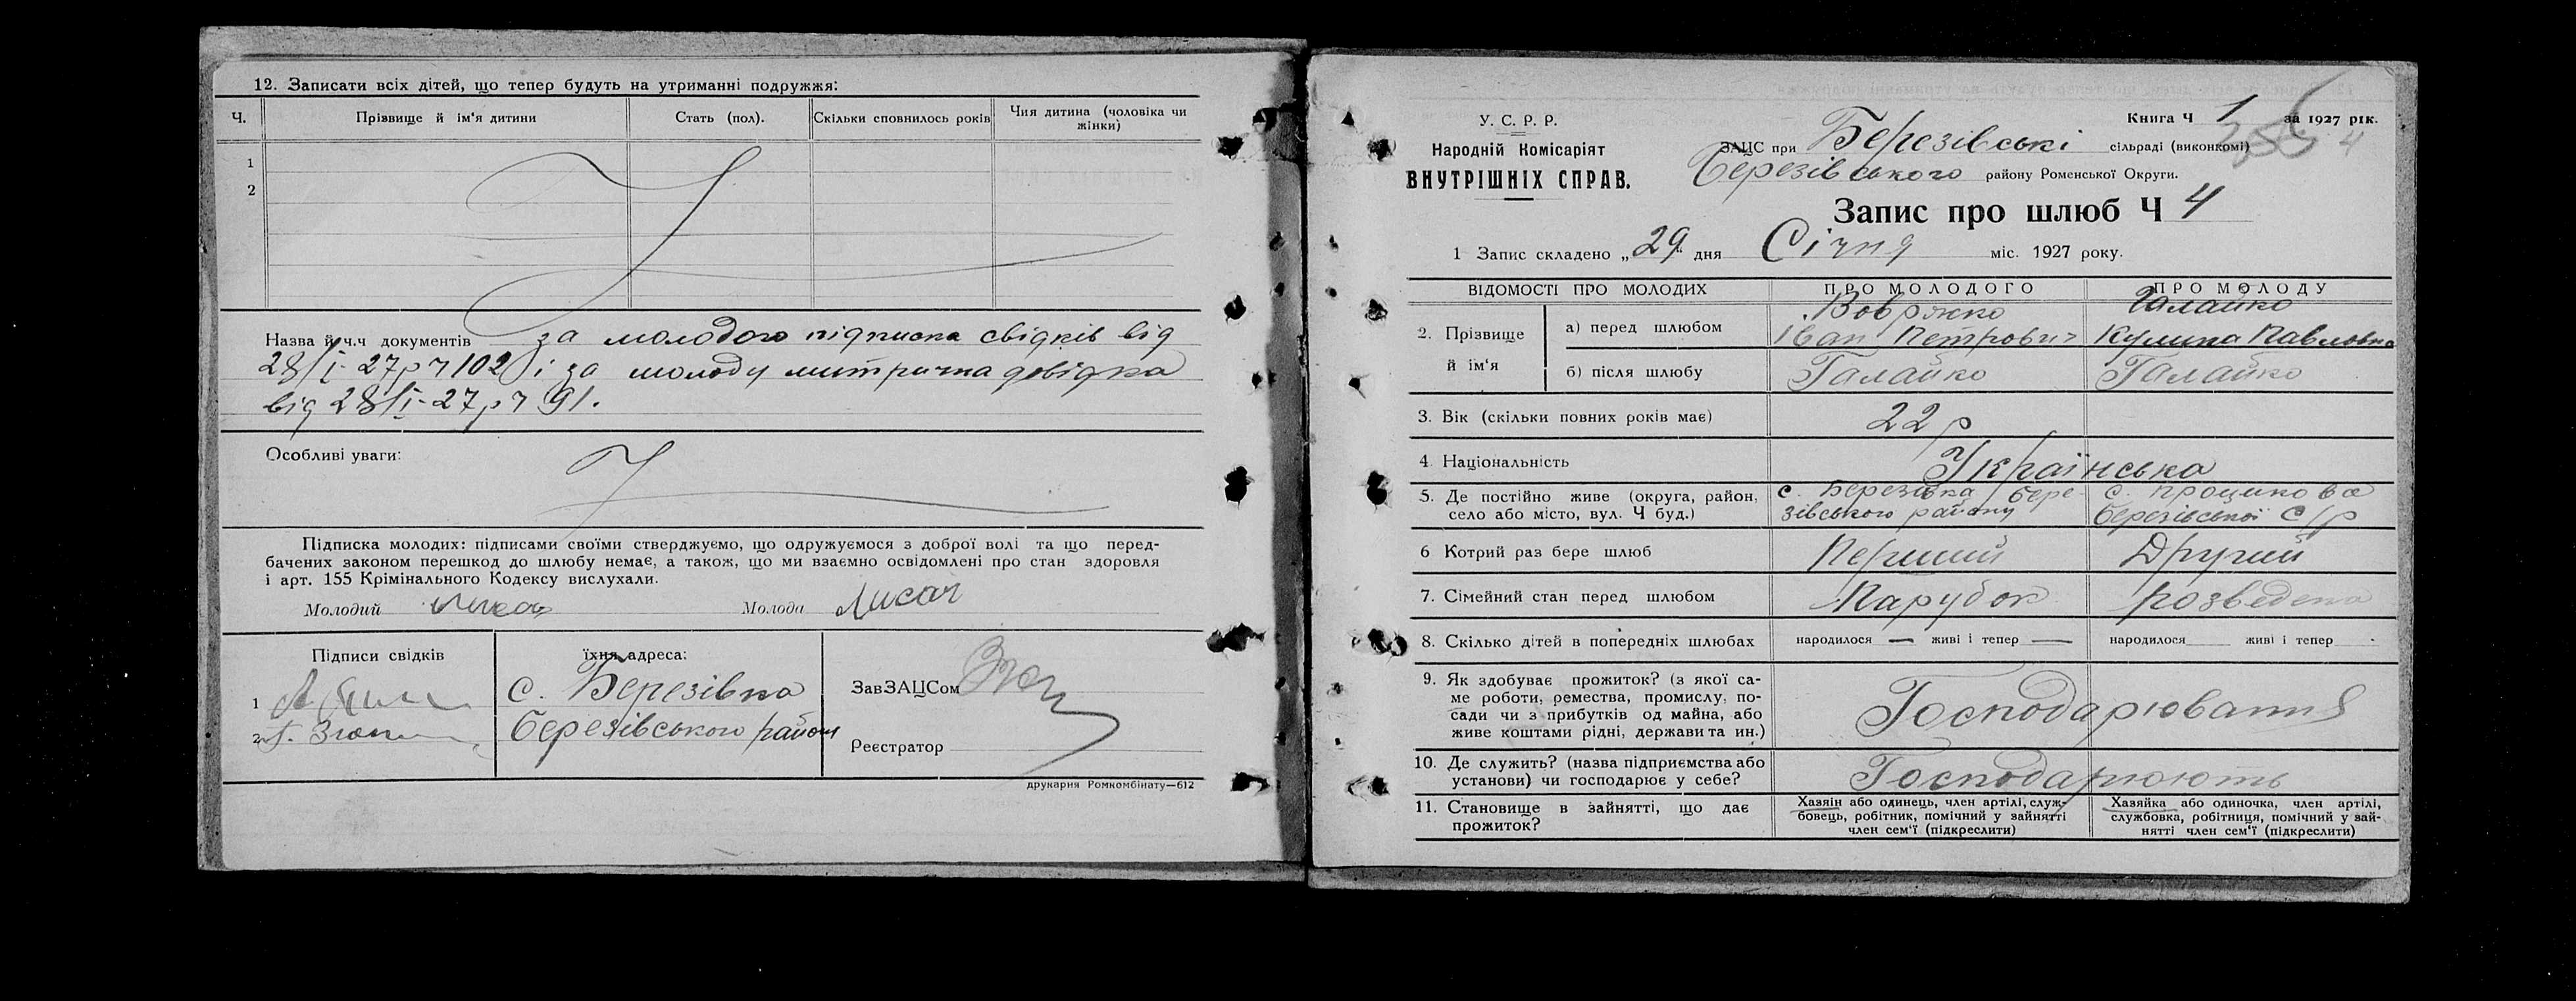 12. Записати всіх дітей, що тепер будуть на утриманні подружжя:
Ч. Прізвище й ім'я дитини Стать (пол). Скільки сповнилось років Чия дитина (чоловіка чи жінки)
1
2
Назва й ч.ч документів за молодого підписка свідків від
28/I-27р ч 102 і за молоду метрична довідка
від 28/I-27р ч 91.
Особливі уваги:
Підписка молодих: підписами своїми стверджуємо, що одружуємося з доброї волі та що перед-
бачених законом перешкод до шлюбу немає, а також, що ми взаємно освідомлені про стан здоровля
і арт. 155 Крімінального Кодексу вислухали.
Молодий Молода Лисач
Підписи свідків їхня адреса:
1 с. Березівка ЗавЗАЦСом
2 березівського району
Реєстратор
друкарня Ромкомбінату—612
У. С. Р. Р.
Народній Комісаріят
ВНУТРІШНІХ СПРАВ.
Книга Ч 1 за 1927 рік.
ЗАЦС при Березівські сільраді (виконкомі)
Березівського району Роменської Округи.
Запис про шлюб Ч 4
1 Запис складено „29" дня Січня міс. 1927 року.
ВІДОМОСТІ ПРО МОЛОДИХ ПРО МОЛОДОГО ПРО МОЛОДУ
2. Прізвище й ім'я
а) перед шлюбом Вовряжко Іван Петрович Галайко Кулина Павловна
б) після шлюбу Галайко Галайко
3. Вік (скільки повних років має) 22 р
4 Національність Українська
5. Де постійно живе (округа, район, с. Березівка бере- с.
село або місто, вул. Ч буд.) зівського району березівської с/р
6 Котрий раз бере шлюб Перший Другий
7. Сімейний стан перед шлюбом Парубок розведена
8. Скілько дітей в попередніх шлюбах народилося — живі і тепер — народилося живі і тепер -
9. Як здобуває прожиток? (з якої са-
ме роботи, ремества, промислу, по-
сади чи з прибутків од майна, або Господарювання
живе коштами рідні, держави та ин.)
10. Де служить? (назва підприємства або
установи) чи господарює у себе? Господарюють
11. Становище в зайнятті, що дає
прожиток?
Хазяін або одинець, член артілі, служ-
бовець, робітник, помічний у зайнятті
член сем'ї (підкреслити)
Хазяйка або одиночка, член артілі,
службовка, робітниця, помічний у зай-
нятті член сем'ї (підкреслити)